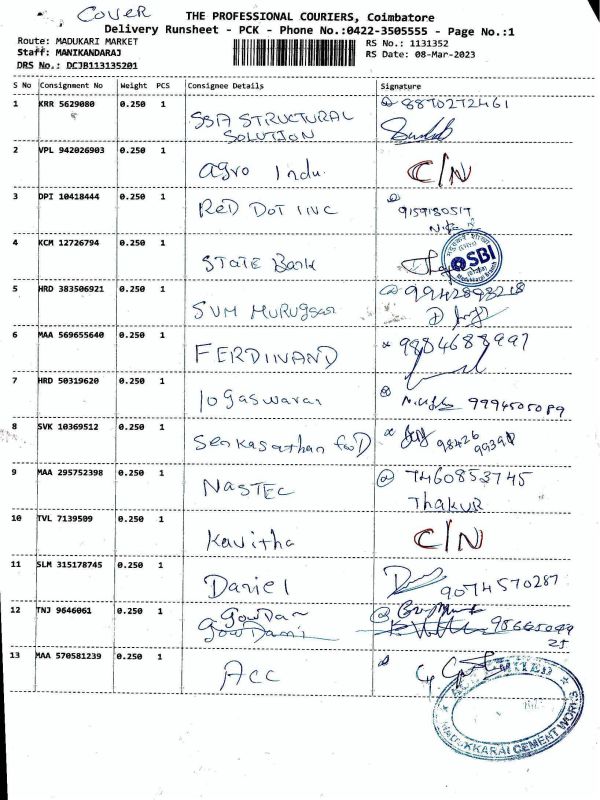 COVER
THE PROFESSIONAL COURIERS, Coimbatore
Delivery Runsheet - PCK - Phone No.:0422-3505555 - Page No.:1
Route: MADUKARI MARKET
RS No.: 1131352
Staff: MANIKANDARAJ
RS Date: 08-Mar-2023
DRS No.: DCJB113135201
S No Consignment No Weight PCS Consignee Details Signature
1 KRR 5629080 0.250 1 SSA STRUCTURAL 8870272461
SOLUTION
2 VPL 942026903 0.250 1 agro Indu. C/N
3 DPI 10418444 0.250 1 ReD DOT INC 9159180517
4 KCM 12726794 0.250 1 STATE Bank
SBI
5 HRD 383506921 0.250 1 SVM MURUGSan 9942898218
6 MAA 569655640 0.250 1 FERDINAND 9884688997
7 HRD 50319620 0.250 1 logaswaran 9994505089
8 SVK 10369512 0.250 1 Senkasathan fooD 98426
99391
9 MAA 295752398 0.250 1 NASTEC 7460853745
Thakur
10 TVL 7139509 0.250 1 Kavitha C/N
11 SLM 315178745 0.250 1 Daniel 9074570287
12 TNJ 9646061 0.250 1
13 MAA 570581239 0.250 1 ACC
CEMENT WORKS